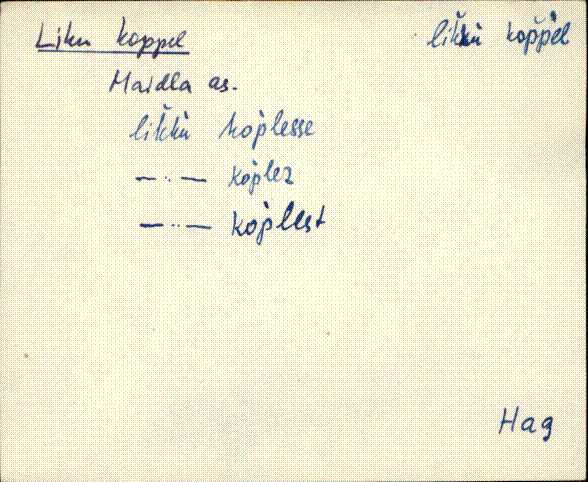 Liku koppel likkù kop̆p̆el
Maidla as.
lik̆kù kop̆lesse
—··— kop̆lez
—··— kop̆lest
Hag